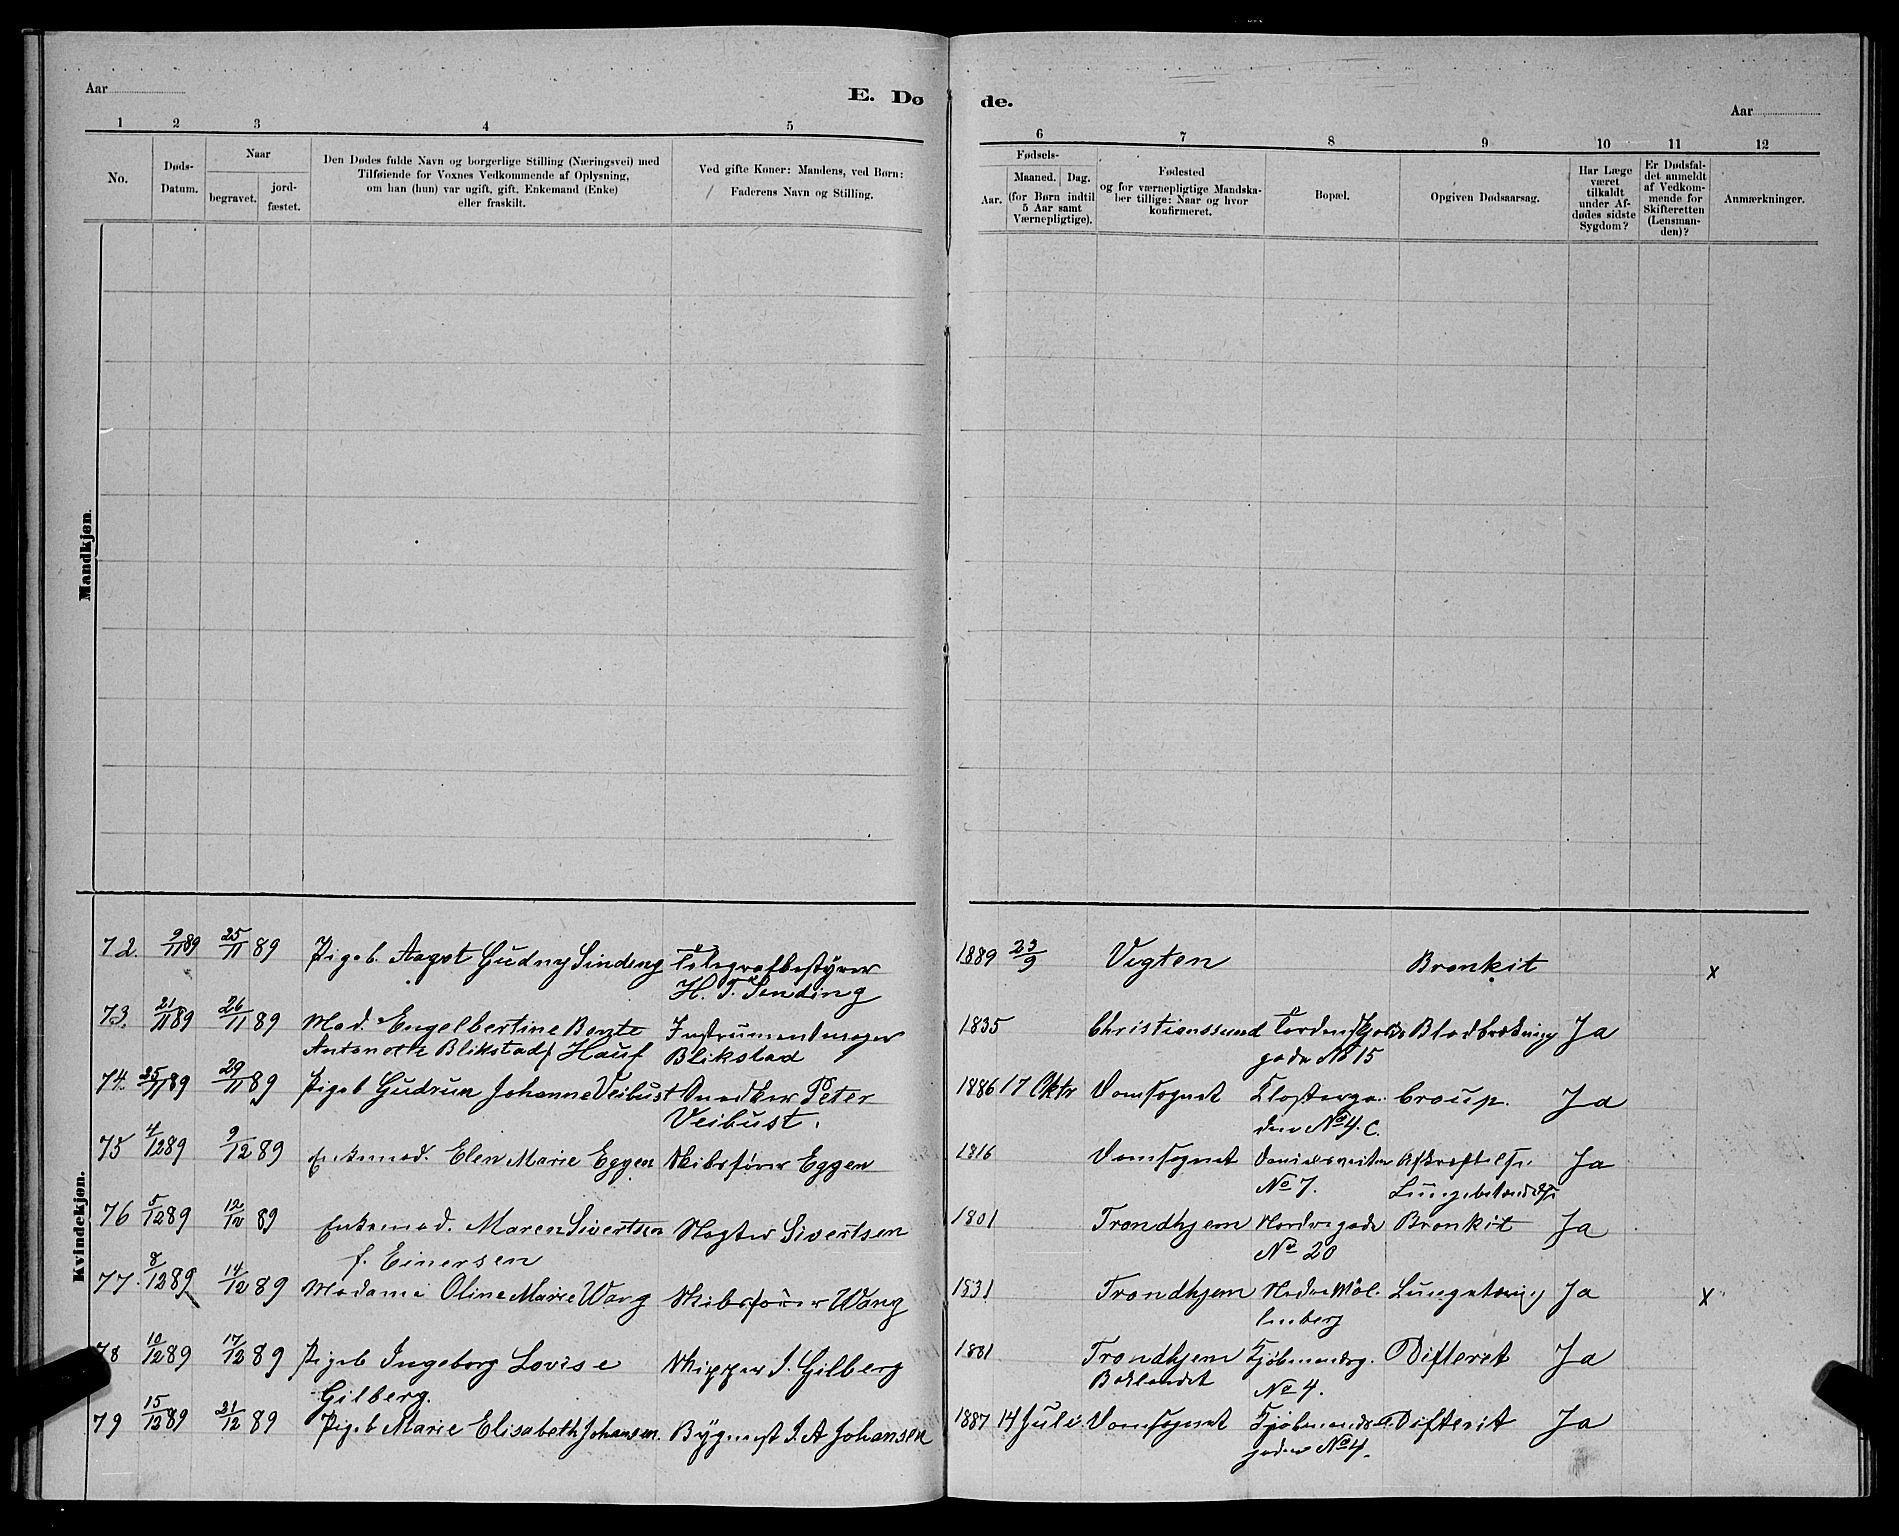 Aar
E. Dø de.
Aar
1 2 3 4 5 6 7 8 9 10 11 12
No.
Døds-
Datum.
Naar
begravet.
jord-
fæstet.
Den Dødes fulde Navn og borgerlige Stilling (Næringsvei) med
Tilføiende for Voxnes Vedkommende af Oplysning,
om han (hun) var ugift, gift, Enkemand (Enke)
eller fraskilt.
Ved gifte Koner: Mandens, ved Børn:
Faderens Navn og Stilling.
Fødsels-
Aar.
Maaned. Dag.
(for Børn indtil
5 Aar samt
Værnepligtige).
Fødested
og for værnepligtige Mandska-
ber tillige: Naar og hvor
konfirmeret.
Bopæl.
Opgiven Dødsaarsag.
Har Læge
været
tilkaldt
under Af-
dødes sidste
Sygdom?
Er Dødsfal-
det anmeldt
af Vedkom-
mende for
Skifteretten
(Lensman-
den)?
Anmærkninger.
Mandkjøn.
Kvindekjøn.
72. 9/11 89 25/11 89 Pigeb. Aagot Gudny Sinding Telegrafbestyrer 1889 23/9 Vigten Bronkit x
H. T. Sinding
73. 21/11 89 26/11 89 Mad. Engelbertine Bergte Instrumentmager 1835 Christianssund Tordenskjolds Blodbrækning Ja
Blikstad f. Hauf Blikstad gade No 15
74. 25/11 89 29/11 89 Pigeb Gudrun Johanne Veibust Snedker Peter 1886 17 Oktr Domsognet Klosterga- Croup. Ja
Veibust. den No 4. c.
75 4/12 89 9/12 89 Enkemad. Elen Marie Eggen Skibsfører Eggen 1816 Domsognet Danielsveiten Afkræftelse. Ja
No 7. Lungebetændelse
76 5/12 89 12/12 89 Enkemad. Maren Sivertsen Vægter Sivertsen 1801 Trondhjem Nordregade Bronkit Ja
f. Einersen No 20
77. 8/12 89 14/12 89 Madame Oline Marie Wang Skibsfører Wang 1831 Trondhjem Nedre Möl- Lungetæring Ja x
lenberg
78 10/12 89 17/12 89 Pigeb Ingeborg Lovise Skipper J. Gilberg 1881 Trondhjem Kjöbmandsg. Difterit Ja
Gilberg. Baklandet No 4.
79 15/12 89 21/12 89 Pigeb Marie Elisabeth Johansen. Bygmest J. A Johansen 1887 14 Juli. Domsognet Kjöbmands- Difterit Ja
gaden No 4.